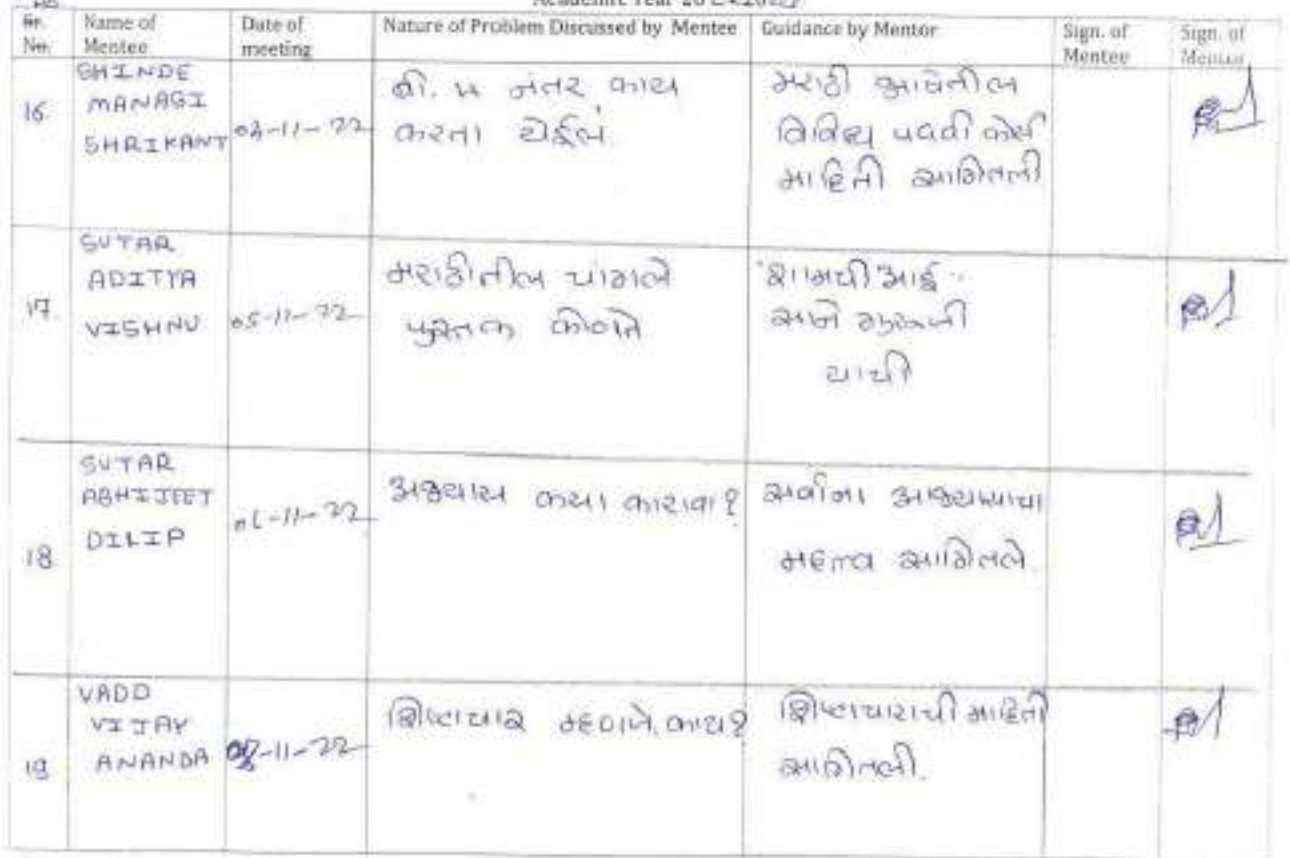 Academic Year 20
Sr. No.
Name of Mentee
Date of meeting
Nature of Problem Discussed by Mentee
Guidance by Mentor
Sign. of Mentee
Sign. of Mentor
16
SHINDE
MANAGI
SHRIKANT
03-11-22
बी. ए नंतर काय
करता येईल.
मराठी भाषेतील
विविध पदवी कोर्स
माहिती सांगितली
17.
SUTAR
ADITYA
VISHNU
05-11-22
मराठीतील चांगले
पुस्तक कोणते
"शामची आई"
साने गुरूजी
याची
18
SUTAR
ABHIJEET
DILIP
-11-22
अभ्यास कसा करावा?
सर्वांना अभ्यासाचा
महत्व सांगितले.
19
VADD
VIJAY
ANANDA
-11-22
शिष्टाचार म्हणजे काय?
शिष्टाचाराची माहिती
सांगितली.